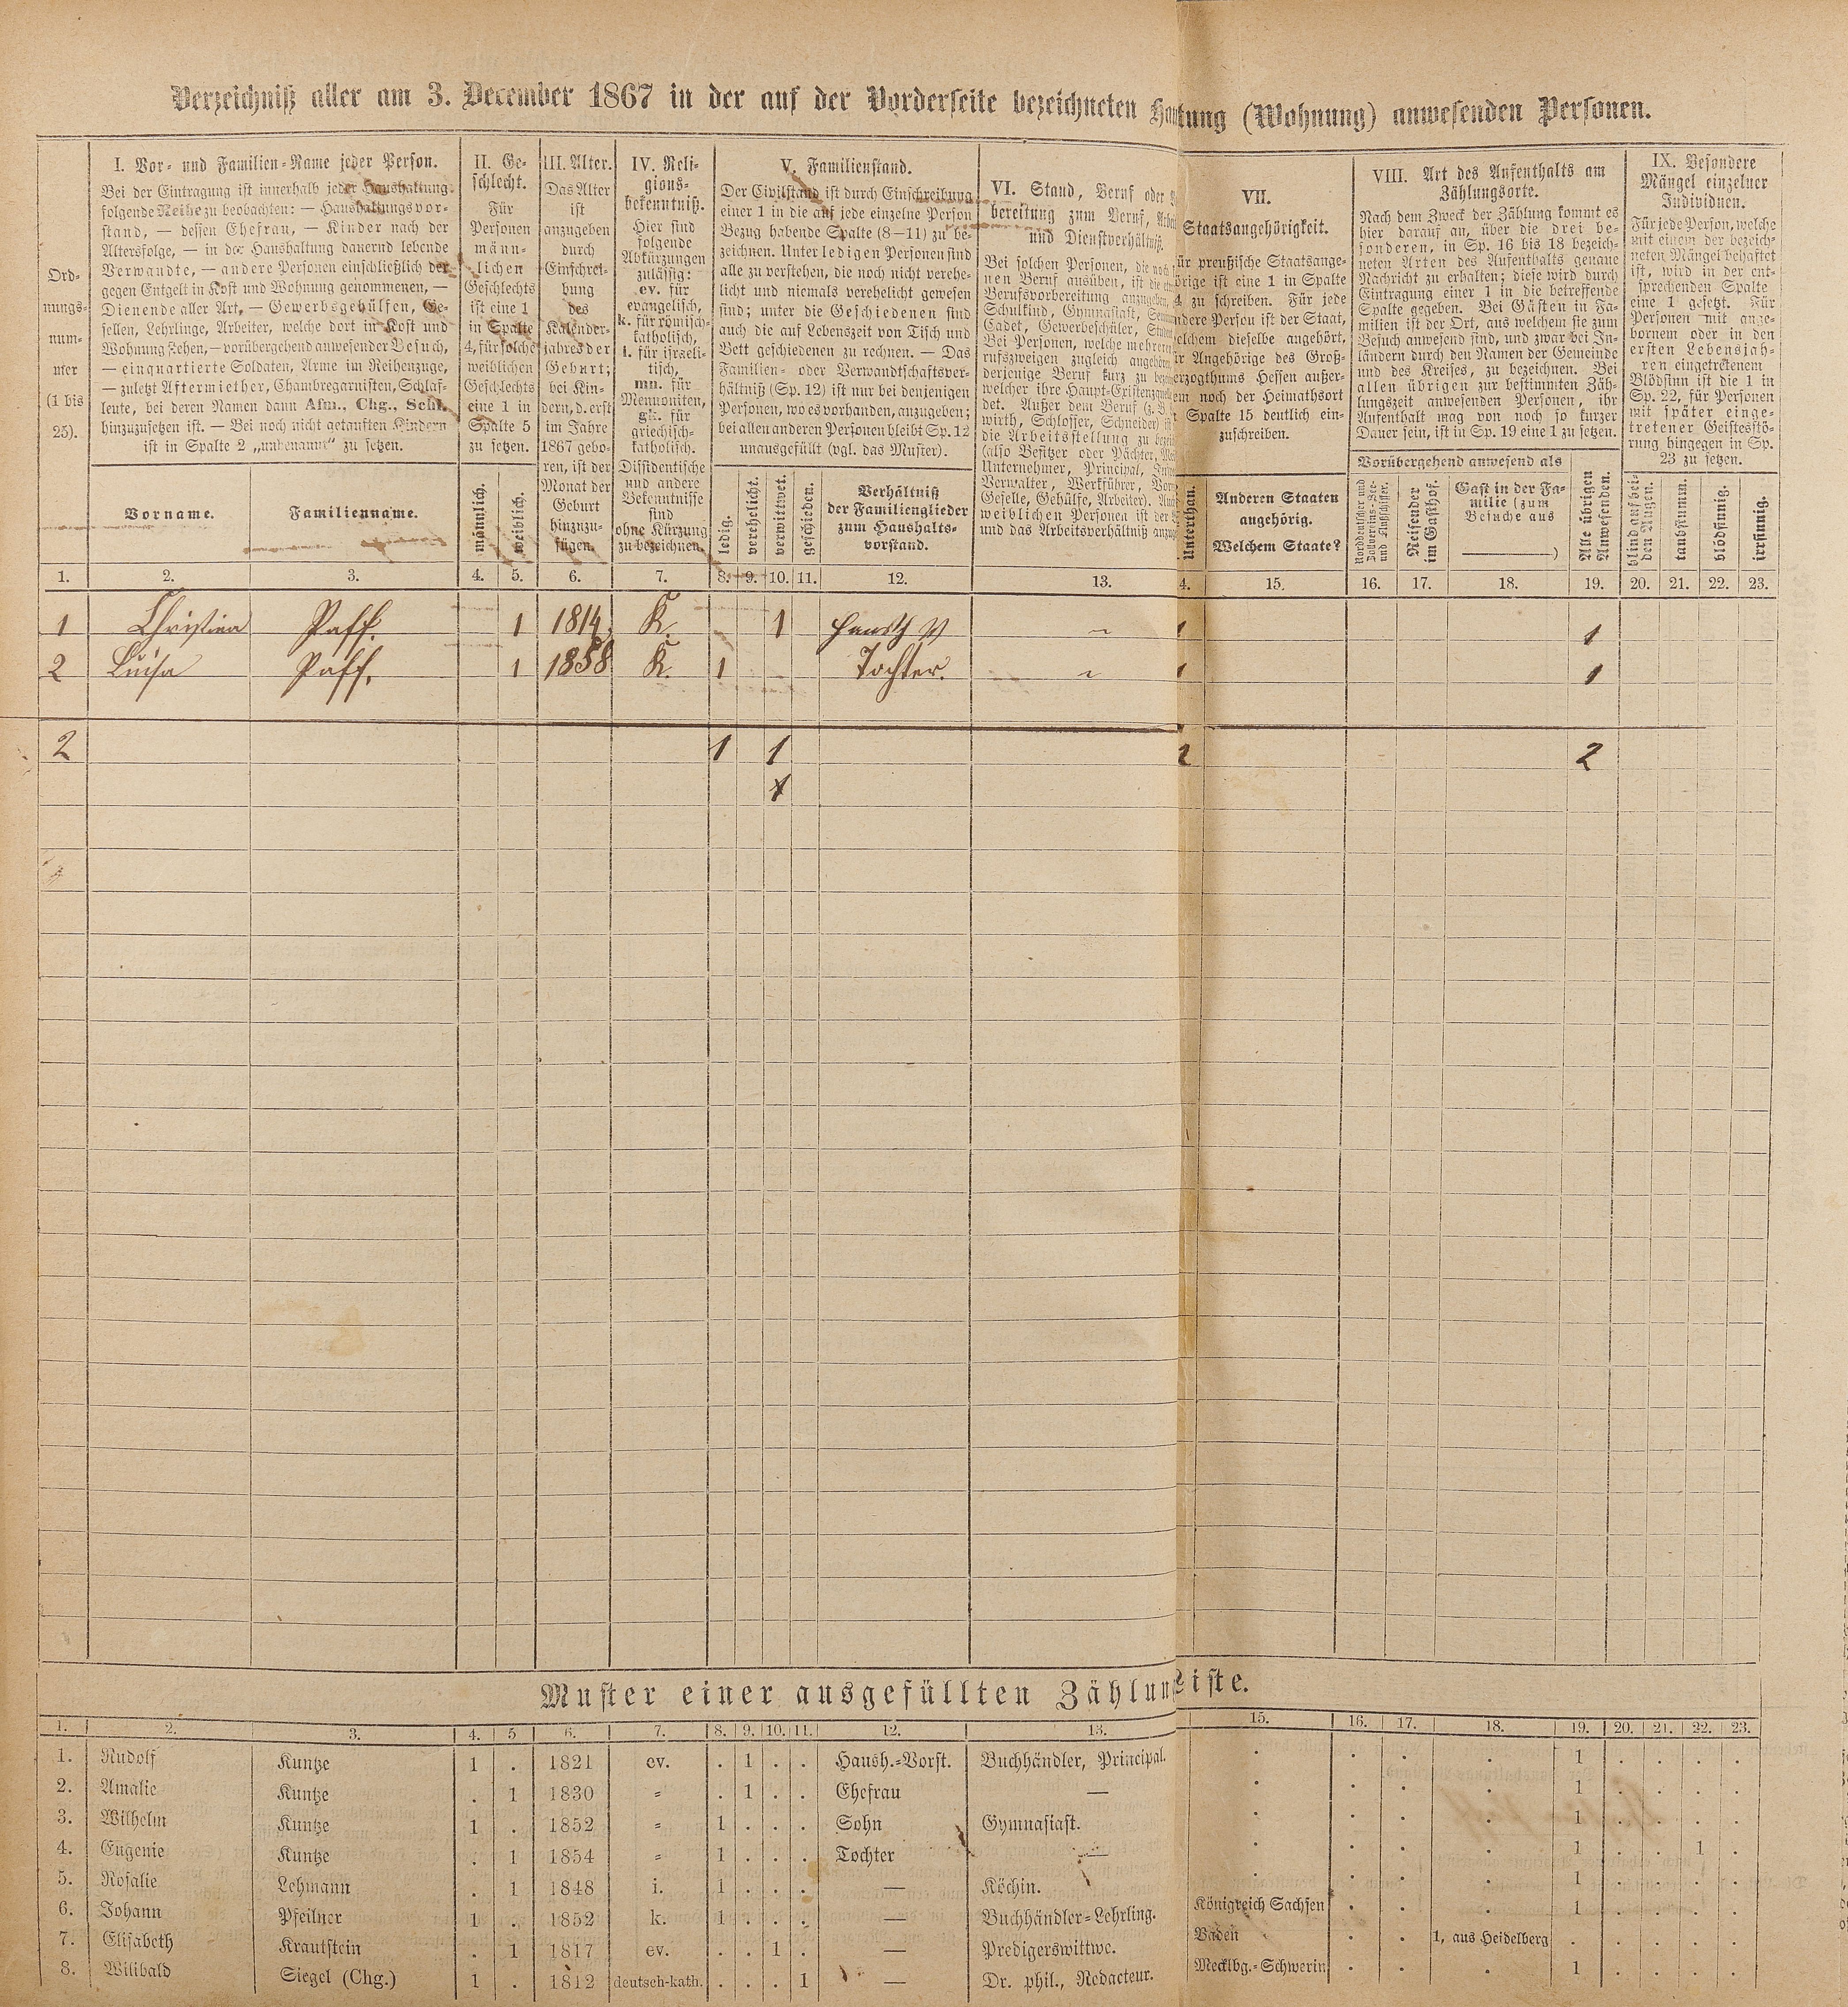 Verzeichniß aller am 3. December 1867 in der auf der Vorderseite bezeichneten Haushaltung (Wohnung) anwesenden Personen.
Ord-
nungs-
num-
mer
(1 bis
25).
I. Vor- und Familien-Name jeder Person.
Bei der Eintragung ist innerhalb jeder Haushaltung
folgende Reihe zu beobachten: — Haushaltungsvor-
stand, — dessen Ehefrau, — Kinder nach der
Altersfolge, — in der Haushaltung dauernd lebende
Verwandte, — andere Personen einschließlich der
gegen Entgelt in Kost und Wohnung genommenen, —
Dienende aller Art, — Gewerbsgehülfen, Ge-
sellen, Lehrlinge, Arbeiter, welche dort in Kost und
Wohnung stehen, — vorübergehend anwesender Besuch,
— einquartierte Soldaten, Arme im Reihenzuge,
— zuletzt Aftermiether, Chambregarnisten, Schlaf-
leute, bei deren Namen dann Afm., Chg., Schl.
hinzuzusetzen ist. — Bei noch nicht getauften Kindern
ist in Spalte 2 „unbenannt“ zu setzen.
Vorname.
Familienname.
II. Ge-
schlecht.
Für
Personen
männ-
lichen
Geschlechts
ist eine 1
in Spalte
4, für solche
weiblichen
Geschlechts
eine 1 in
Spalte 5
zu setzen.
männlich.
weiblich.
III. Alter.
Das Alter
ist
anzugeben
durch
Einschrei-
bung
des
Kalender-
jahres der
Geburt;
bei Kin-
dern, d. erst
im Jahre
1867 gebo-
ren, ist der
Monat der
Geburt
hinzuzu-
fügen.
IV. Reli-
gions-
bekenntniß.
Hier sind
folgende
Abkürzungen
zulässig:
ev. für
evangelisch,
k. für römisch-
katholisch,
i. für israeli-
tisch,
mn. für
Mennoniten,
gk. für
griechisch-
katholisch.
Dissidentische
und andere
Bekenntnisse
sind
ohne Kürzung
zu bezeichnen.
V. Familienstand.
Der Civilstand ist durch Einschreibung
einer 1 in die auf jede einzelne Person
Bezug habende Spalte (8—11) zu be-
zeichnen. Unter ledigen Personen sind
alle zu verstehen, die noch nicht verehe-
licht und niemals verehelicht gewesen
sind; unter die Geschiedenen sind
auch die auf Lebenszeit von Tisch und
Bett geschiedenen zu rechnen. — Das
Familien- oder Verwandtschaftsver-
hältniß (Sp. 12) ist nur bei denjenigen
Personen, wo es vorhanden, anzugeben;
bei allen anderen Personen bleibt Sp. 12
unausgefüllt (vgl. das Muster).
ledig.
verehelicht.
verwittwet.
geschieden.
Verhältniß
der Familienglieder
zum Haushalts-
vorstand.
VI. Stand, Beruf oder
bereitung zum Beruf,
und Dienstverhältniß.
Bei solchen Personen, die noch
nen Beruf ausüben, ist die
Berufsvorbereitung anzugeben,
Schulkind, Gymnasiast,
Cadet, Gewerbeschüler,
Bei Personen, welche mehreren
rufszweigen zugleich angehören,
derjenige Beruf kurz zu
welcher ihre Haupt-Existenzquelle
det. Außer dem Beruf (z. B.
wirth, Schlosser, Schneider)
die Arbeitsstellung zu
(also Besitzer oder Pächter,
Unternehmer, Principal,
Verwalter, Werkführer,
Geselle, Gehülfe, Arbeiter).
weiblichen Personen ist der
und das Arbeitsverhältniß
VII.
Staatsangehörigkeit.
Für preußische Staatsange-
hörige ist eine 1 in Spalte
14 zu schreiben. Für jede
andere Person ist der Staat,
welchem dieselbe angehört,
für Angehörige des Groß-
herzogthums Hessen außer-
dem noch der Heimathsort
in Spalte 15 deutlich ein-
zuschreiben.
Unterthan.
Anderen Staaten
angehörig.
Welchem Staate?
VIII. Art des Aufenthalts am
Zählungsorte.
Nach dem Zweck der Zählung kommt es
hier darauf an, über die drei be-
sonderen, in Sp. 16 bis 18 bezeich-
neten Arten des Aufenthalts genaue
Nachricht zu erhalten; diese wird durch
Eintragung einer 1 in die betreffende
Spalte gegeben. Bei Gästen in Fa-
milien ist der Ort, aus welchem sie zum
Besuch anwesend sind, und zwar bei In-
ländern durch den Namen der Gemeinde
und des Kreises, zu bezeichnen. Bei
allen übrigen zur bestimmten Zäh-
lungszeit anwesenden Personen, ihr
Aufenthalt mag von noch so kurzer
Dauer sein, ist in Sp. 19 eine 1 zu setzen.
Vorübergehend anwesend als
Norddeutscher und
Zollvereins-See-
und Flußschiffer.
Reisender
im Gasthof.
Gast in der Fa-
milie (zum
Besuche aus
)
Alle übrigen
Anwesenden.
IX. Besondere
Mängel einzelner
Individuen.
Für jede Person, welche
mit einem der bezeich-
neten Mängel behaftet
ist, wird in der ent-
sprechenden Spalte
eine 1 gesetzt. Für
Personen mit ange-
bornem oder in den
ersten Lebensjah-
ren eingetretenem
Blödsinn ist die 1 in
Sp. 22, für Personen
mit später einge-
tretener Geistesstö-
rung hingegen in Sp.
23 zu setzen.
blind auf bei-
den Augen.
taubstumm.
blödsinnig.
irrsinnig.
1. 2. 3. 4. 5. 6. 7. 8. 9. 10. 11. 12. 13. 4. 15. 16. 17. 18. 19. 20. 21. 22. 23.
1 Christina Paff. 1 1814 K. 1 1 1
2 Luisa Paff. 1 1858 K. 1 Tochter. 1 1
2 1 1 2 2
Muster einer ausgefüllten Zählungsliste.
1. 2. 3. 4. 5 6. 7. 8. 9. 10. 11. 12. 13. 15. 16. 17. 18. 19. 20. 21. 22. 23.
1. Rudolf Kuntze 1 . 1821 ev. . 1 . . Haush.-Vorst. Buchhändler, Principal. . . . . 1 . . . .
2. Amalie Kuntze . 1 1830 = . 1 . . Ehefrau — . . . . 1 . . . .
3. Wilhelm Kuntze 1 . 1852 = 1 . . . Sohn Gymnasiast. . . . . 1 . . . .
4. Eugenie Kuntze . 1 1854 = 1 . . . Tochter — . . . . 1 . . 1 .
5. Rosalie Lehmann . 1 1848 i. 1 . . . — Köchin. . . . . 1 . . . .
6. Johann Pfeilner 1 . 1852 k. 1 . . . — Buchhändler-Lehrling. Königreich Sachsen . . . 1 . . . .
7. Elisabeth Krautstein . 1 1817 ev. . . 1 . — Predigerswittwe. Baden . . 1, aus Heidelberg . . . . .
8. Wilibald Siegel (Chg.) 1 . 1812 deutsch-kath. . . . 1 — Dr. phil., Redacteur. Mecklbg.-Schwerin . . . 1 . . . .